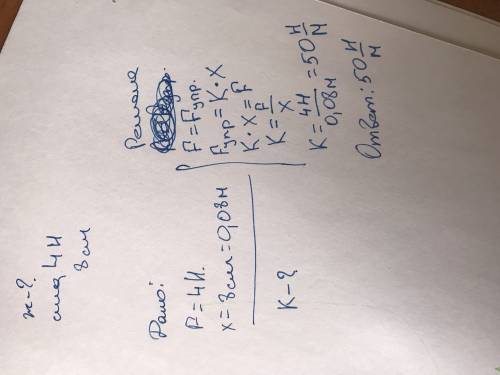 ж-?
сила 4Н
8см
Дано:
F=4Н.
x=8см=0,08м
К-?
Решение
F=Fупр.
Fупр=К·X
К·X=F
К=F/X
К=4Н/0,08м=50 Н/м
Ответ: 50 Н/м